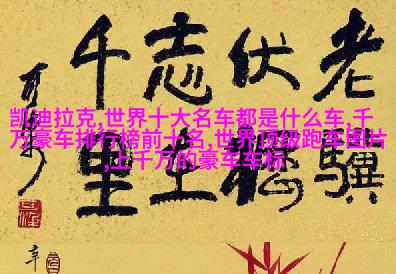 凯迪拉克,世界十大名车都是什么车,千
万豪车排行榜前十名,世界顶级跑车图片
,上千万的豪车车标
老驥
伏櫪
志在
千里
辛